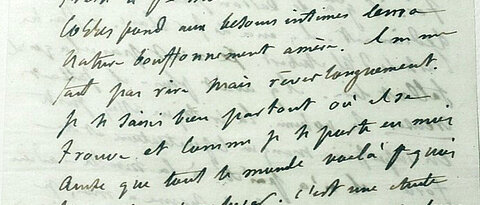 correspond aux besoins intimes de ma
nature bouffonnement amère. Il ne me
fait pas rire mais rêver longuement.
je le saisis bien partout où il se
trouve et comme je le porte en moi
ainsi que tout le monde voilà pquoi
c'est une